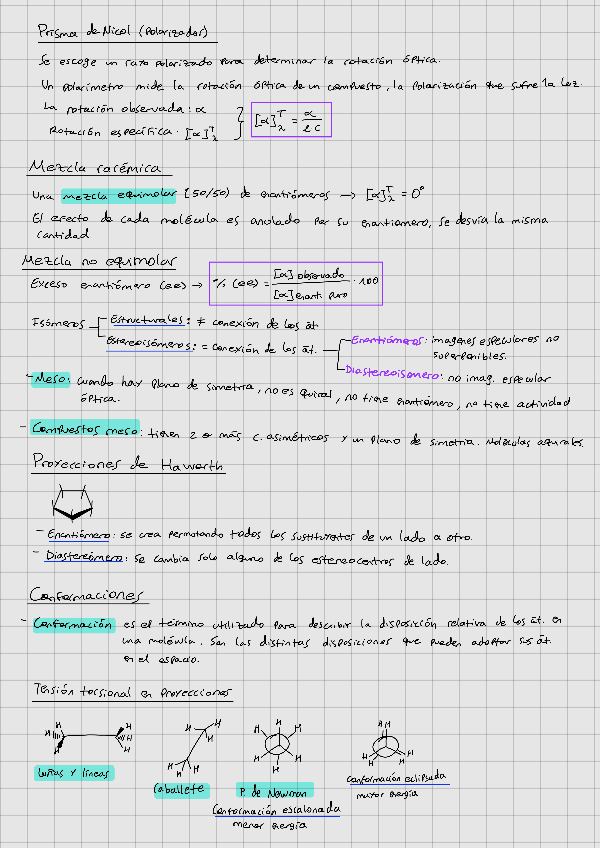 Prisma de Nicol (Polarizador)
Se escoge un rayo polarizado para determinar la rotación óptica.
Un polarímetro mide la rotación óptica de un compuesto, la polarización que sufre la luz.
La rotación observada: α
Rotación específica: [α]ᵀλ
[α]ᵀλ = α / l c
Mezcla racémica
Una mezcla equimolar (50/50) de enantiómeros → [α]ᵀλ = 0°
El efecto de cada molécula es anulado por su enantiomero, se desvía la misma
cantidad
Mezcla no equimolar
Exceso enantiómero (ee) → % (ee) = [α] observado / [α] enant. puro · 100
Isómeros
Estructurales: ≠ conexión de los át
Estereoisómeros: = conexión de los át.
Enantiómeros: imagenes especulares no
superponibles.
Diastereoisomero: no imag. especular
- Meso: cuando hay plano de simetria, no es quiral, no tiene enantiómero, no tiene actividad
óptica.
- Compuestos meso: tienen 2 o más c. asimétricos y un plano de simetria. Moléculas aquirales.
Proyecciones de Haworth
- Enantiómero: se crea permutando todos los sustituyentes de un lado a otro.
- Diastereómero: se cambia solo alguno de los estereocentros de lado.
Conformaciones
- Conformación es el término utilizado para describir la disposición relativa de los át. en
una molécula. Son las distintas disposiciones que pueden adoptar sus át
en el espacio.
Tensión torsional en Proyecciones
H H H H H H
cuñas y líneas
H H H H H H
Caballete
H H H H H H
P. de Newman
Conformación escalonada
menor energía
H H H H H H
Conformación eclipsada
mayor energía